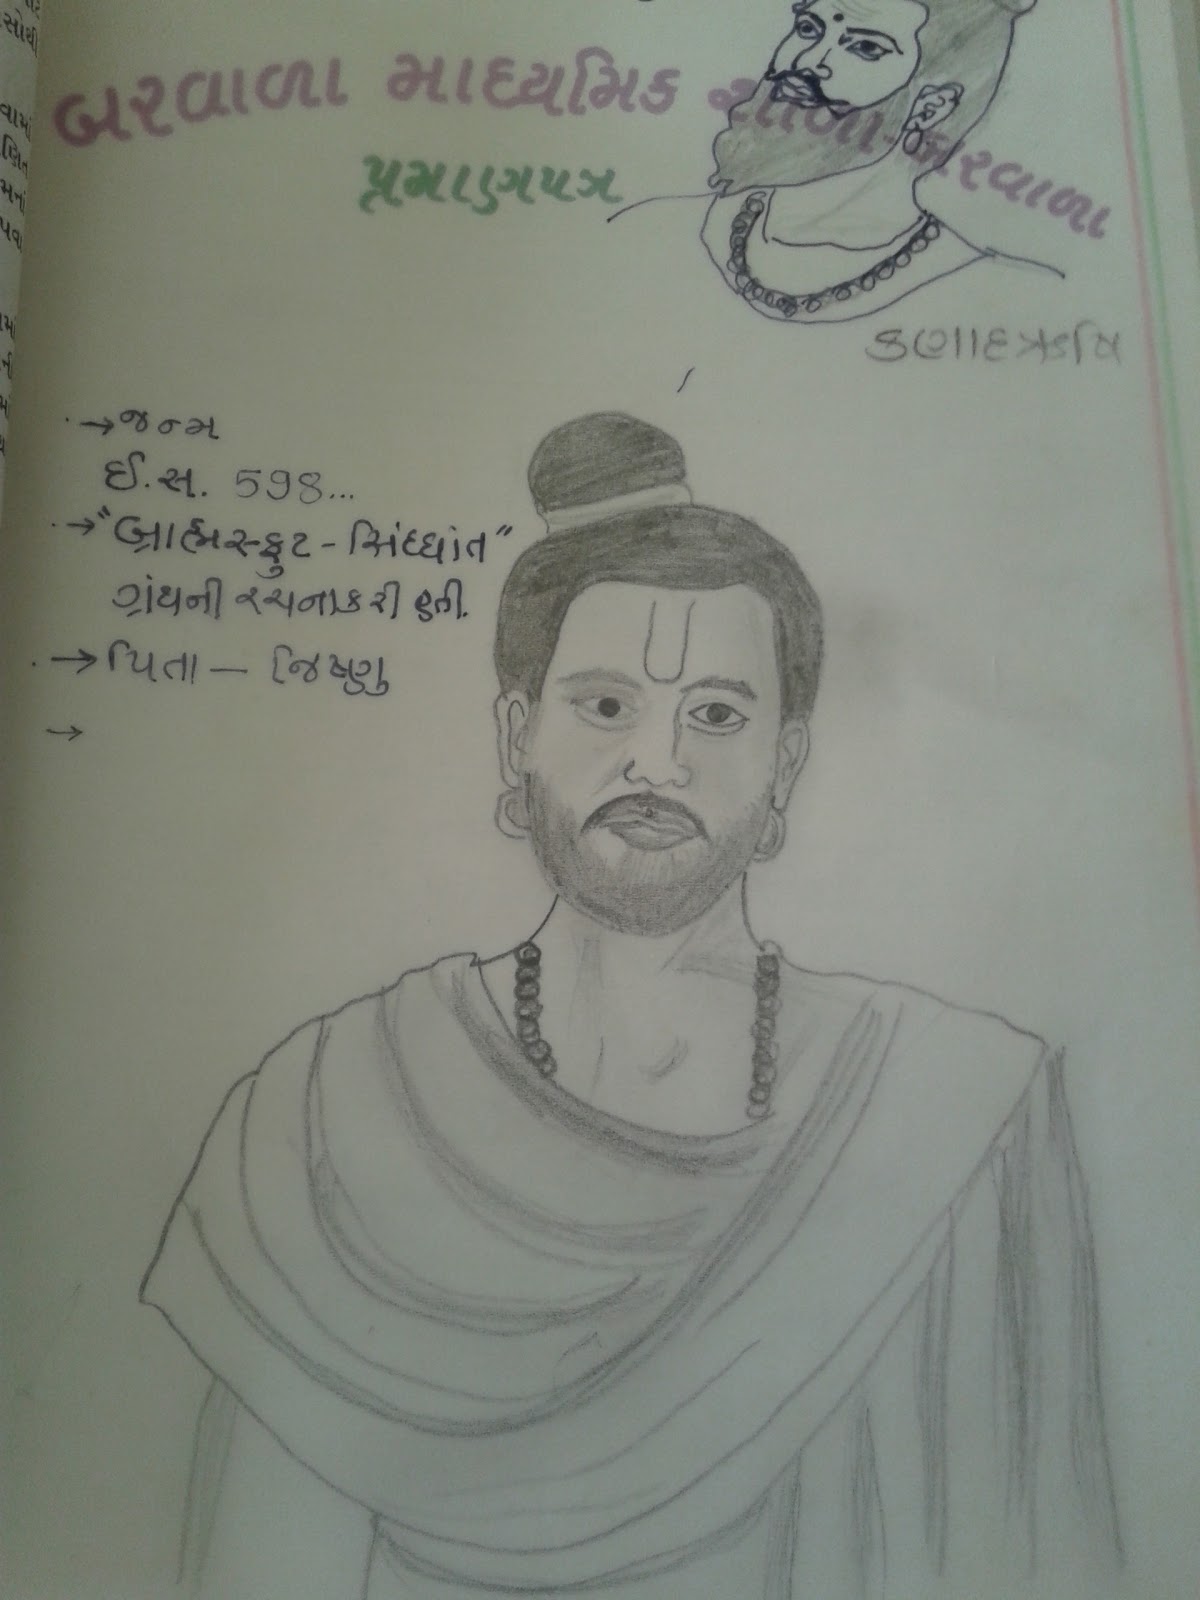 બરવાળા માધ્યમિક શાળા-બરવાળા
પ્રમાણપત્ર
કણાદઋષિ
→ જન્મ
ઈ.સ. 598...
→ "બ્રાહ્મસ્ફુટ - સિંદ્ધાંત"
ગ્રંથની રચના કરી હતી.
→ પિતા — જિષ્ણુ
→